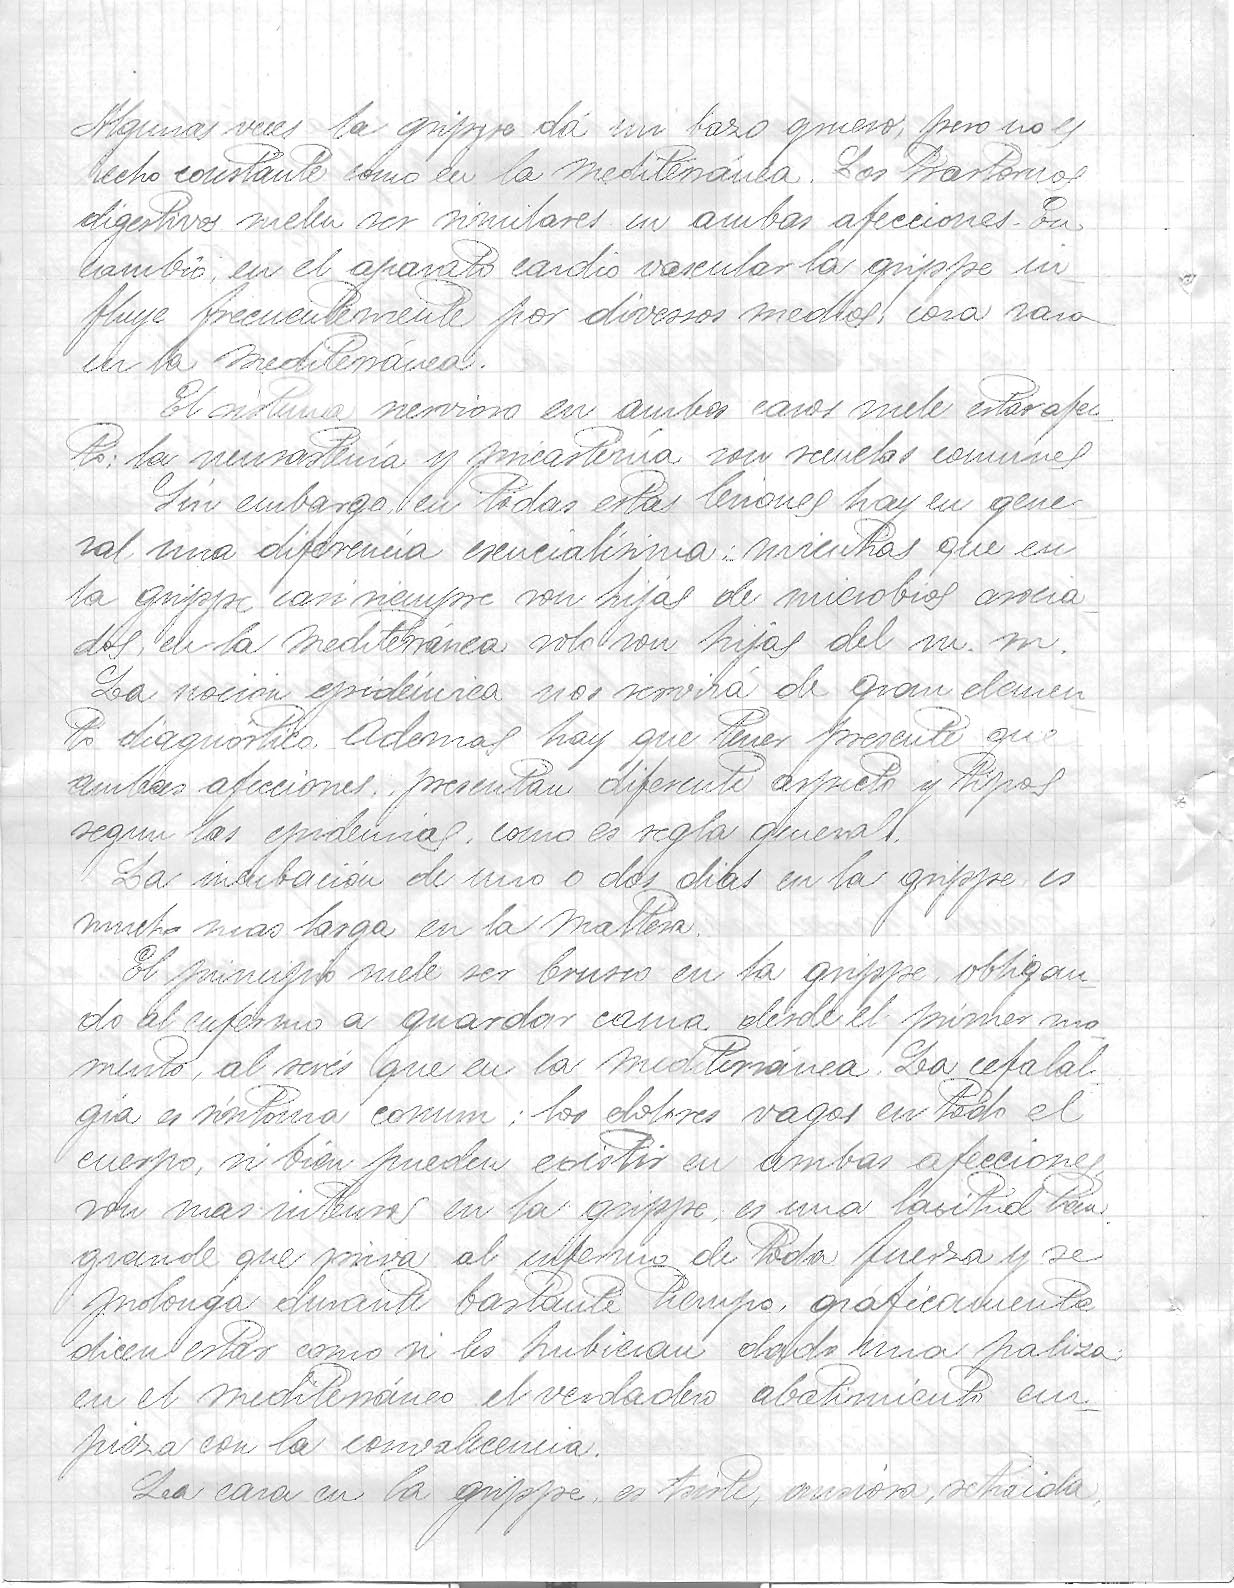 Algunas veces la grippe dá un bazo grueso, pero no es
hecho constante como en la mediterránea. Los trastornos
digestivos suelen ser similares en ambas afecciones. En
cambio, en el aparato cardio vascular la grippe in
fluye frecuentemente por diversos medios, cosa rara
en la mediterránea.
El sistema nervioso en ambos casos suele estar afec-
to; la neurastenia y psicastenia son secuelas comunes
Sin embargo, en todas estas lesiones hay en gene-
ral una diferencia esencialísima: mientras que en
la grippe casi siempre son hijas de microbios asocia-
dos, en la mediterránea solo son hijas del m. m.
La noción epidémica nos servirá de gran elemen-
to diagnóstico. Ademas hay que tener presente que
ambas afecciones, presentan diferente aspecto y tipos
segun las epidemias, como es regla general.
La incubación de uno o dos dias en la grippe, es
mucho mas larga en la maltesa.
El principio suele ser brusco en la grippe, obligan-
do al enfermo a guardar cama desde el primer mo
mento, al revés que en la mediterránea. La cefalal-
gia es síntoma comun; los dolores vagos en todo el
cuerpo, si bien pueden existir en ambas afecciones,
son mas intensos en la grippe, es una laxitud tan
grande que priva al enfermo de toda fuerza y se
prolonga durante bastante tiempo, graficamente
dicen estar como si les hubieran dado una paliza;
en el mediterráneo el verdadero abatimiento em-
pieza con la convalecencia.
La cara en la grippe, es triste, ansiosa, retraida,